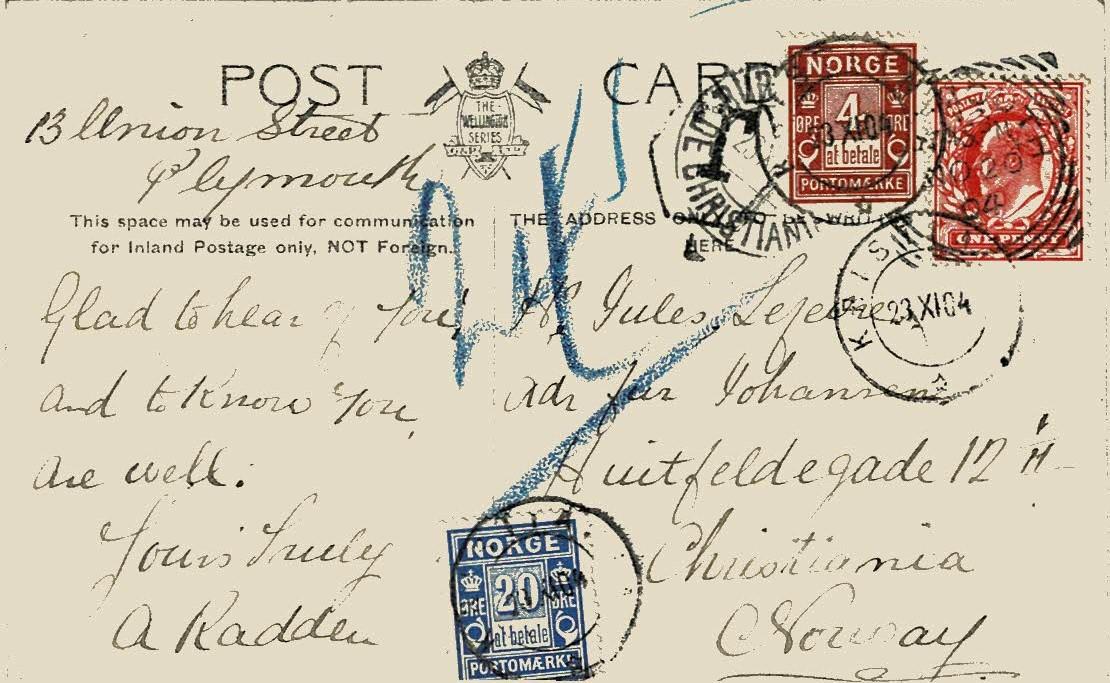 POST CARD
THE
WELLINGTON
SERIES
13 Union Street
Plymouth
This space may be used for communication
for Inland Postage only, NOT Foreign.
THE ADDRESS ONLY TO BE WRITTEN
HERE
Glad to hear of You,
and to Know You
are well.
Yours Truly
A Radden
Jules
adr fur Johansen
Huitfeldegade 12 II
Christiania
Norway
NORGE
4
ØRE ØRE
at betale
PORTOMÆRKE
23 XI 04
CHRISTIANIA
ONE PENNY
KRISTIANIA
23 XI 04
NORGE
20
ØRE ØRE
at betale
PORTOMÆRKE